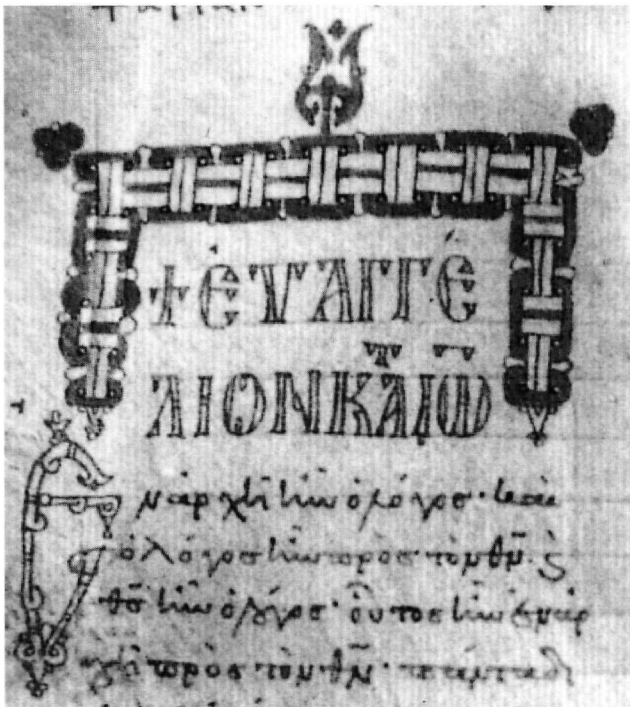 + ἘΥΑΓΓΈ
ΛΙΟΝ ΚΑΤ ΙΩ̅
Ἐν ἀρχῆ ἦν ὁ λόγος· καὶ
ὁ λόγος ἦν πρὸς τὸν θ̅ν̅· ϗ
θ̅ς̅ ἦν ὁ λόγος· οὗτος ἦν ἐν ἀρ
χῆ πρὸς τὸν θ̅ν̅· πάντα δι